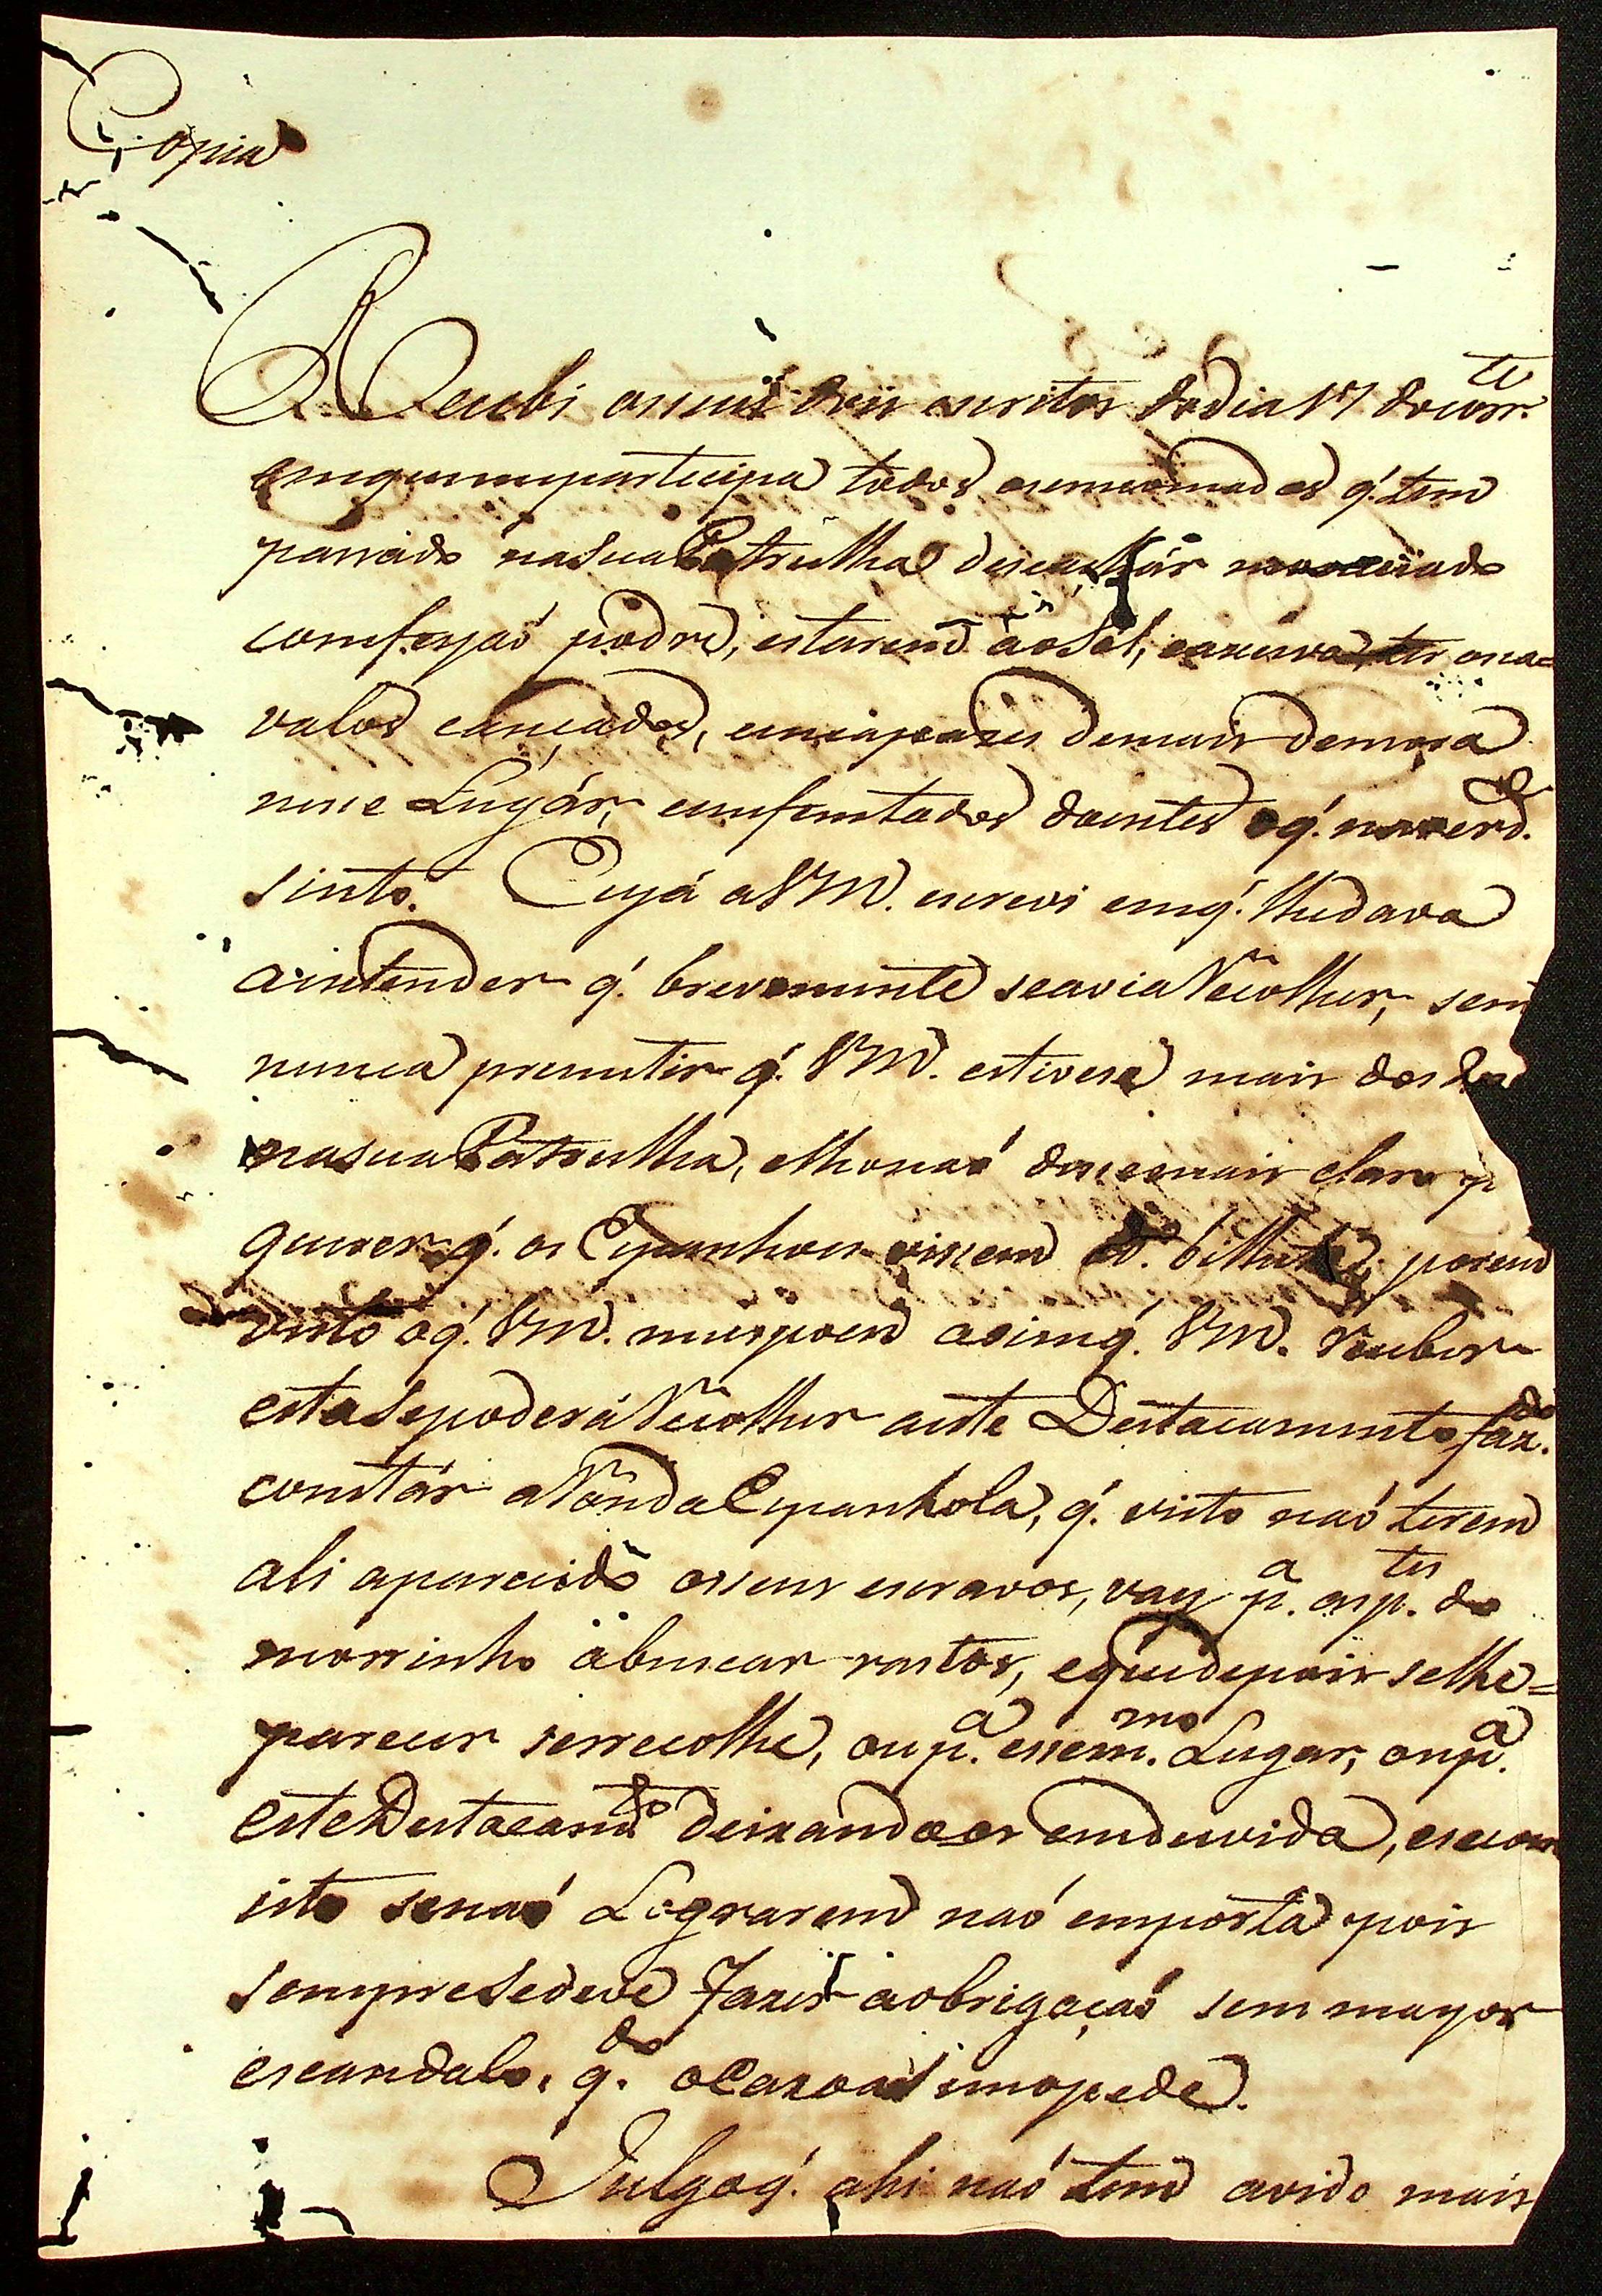 Copia
Recebi os seus dois escritos do dia 17 do corr.te
em que me participa todos os encomodos q́. tem
passado na sua Patrulha de secar
com feijaó podre, estarem ao Sol, e axuva, ter os ca=
valos cançados, e incapazes de mais demora
nese Lugár, e infentados doentes o q́. na verd.e
sinto. Eu já a VM. escrevi em q́. lhe dava
a intender q́. brevemente se avia Recolher, sem
nunca premitir q́. VM. estivese mais dos des
na sua Patrulha, e lho naó dise mais claro p
querer q́. os Espanhois visem o d.o bilhete, porem
visto o q́. VM. me ispoem asim q́. VM. Receber
esta Se poderá Recolher a este Destacamento faz.do
constár a Ronda Espanhola, q́. visto naó terem
ali aparecido os seus escravos, vay p.a as p.tes do
morrinho a buscar rastos, e q́ue depois se lhe=
parecer se recolhe, ou p.a esse m.mo Lugar, ou p.a
este Destacam.to deixando os em duvida, e se com
isto se naó Lograrem naó emporta pois
sempre Se deve fazer a obrigaçaó sem mayor
escandalo. q.do o Cazo naó impede.
Julgo q́. ahi naó tem avido mais